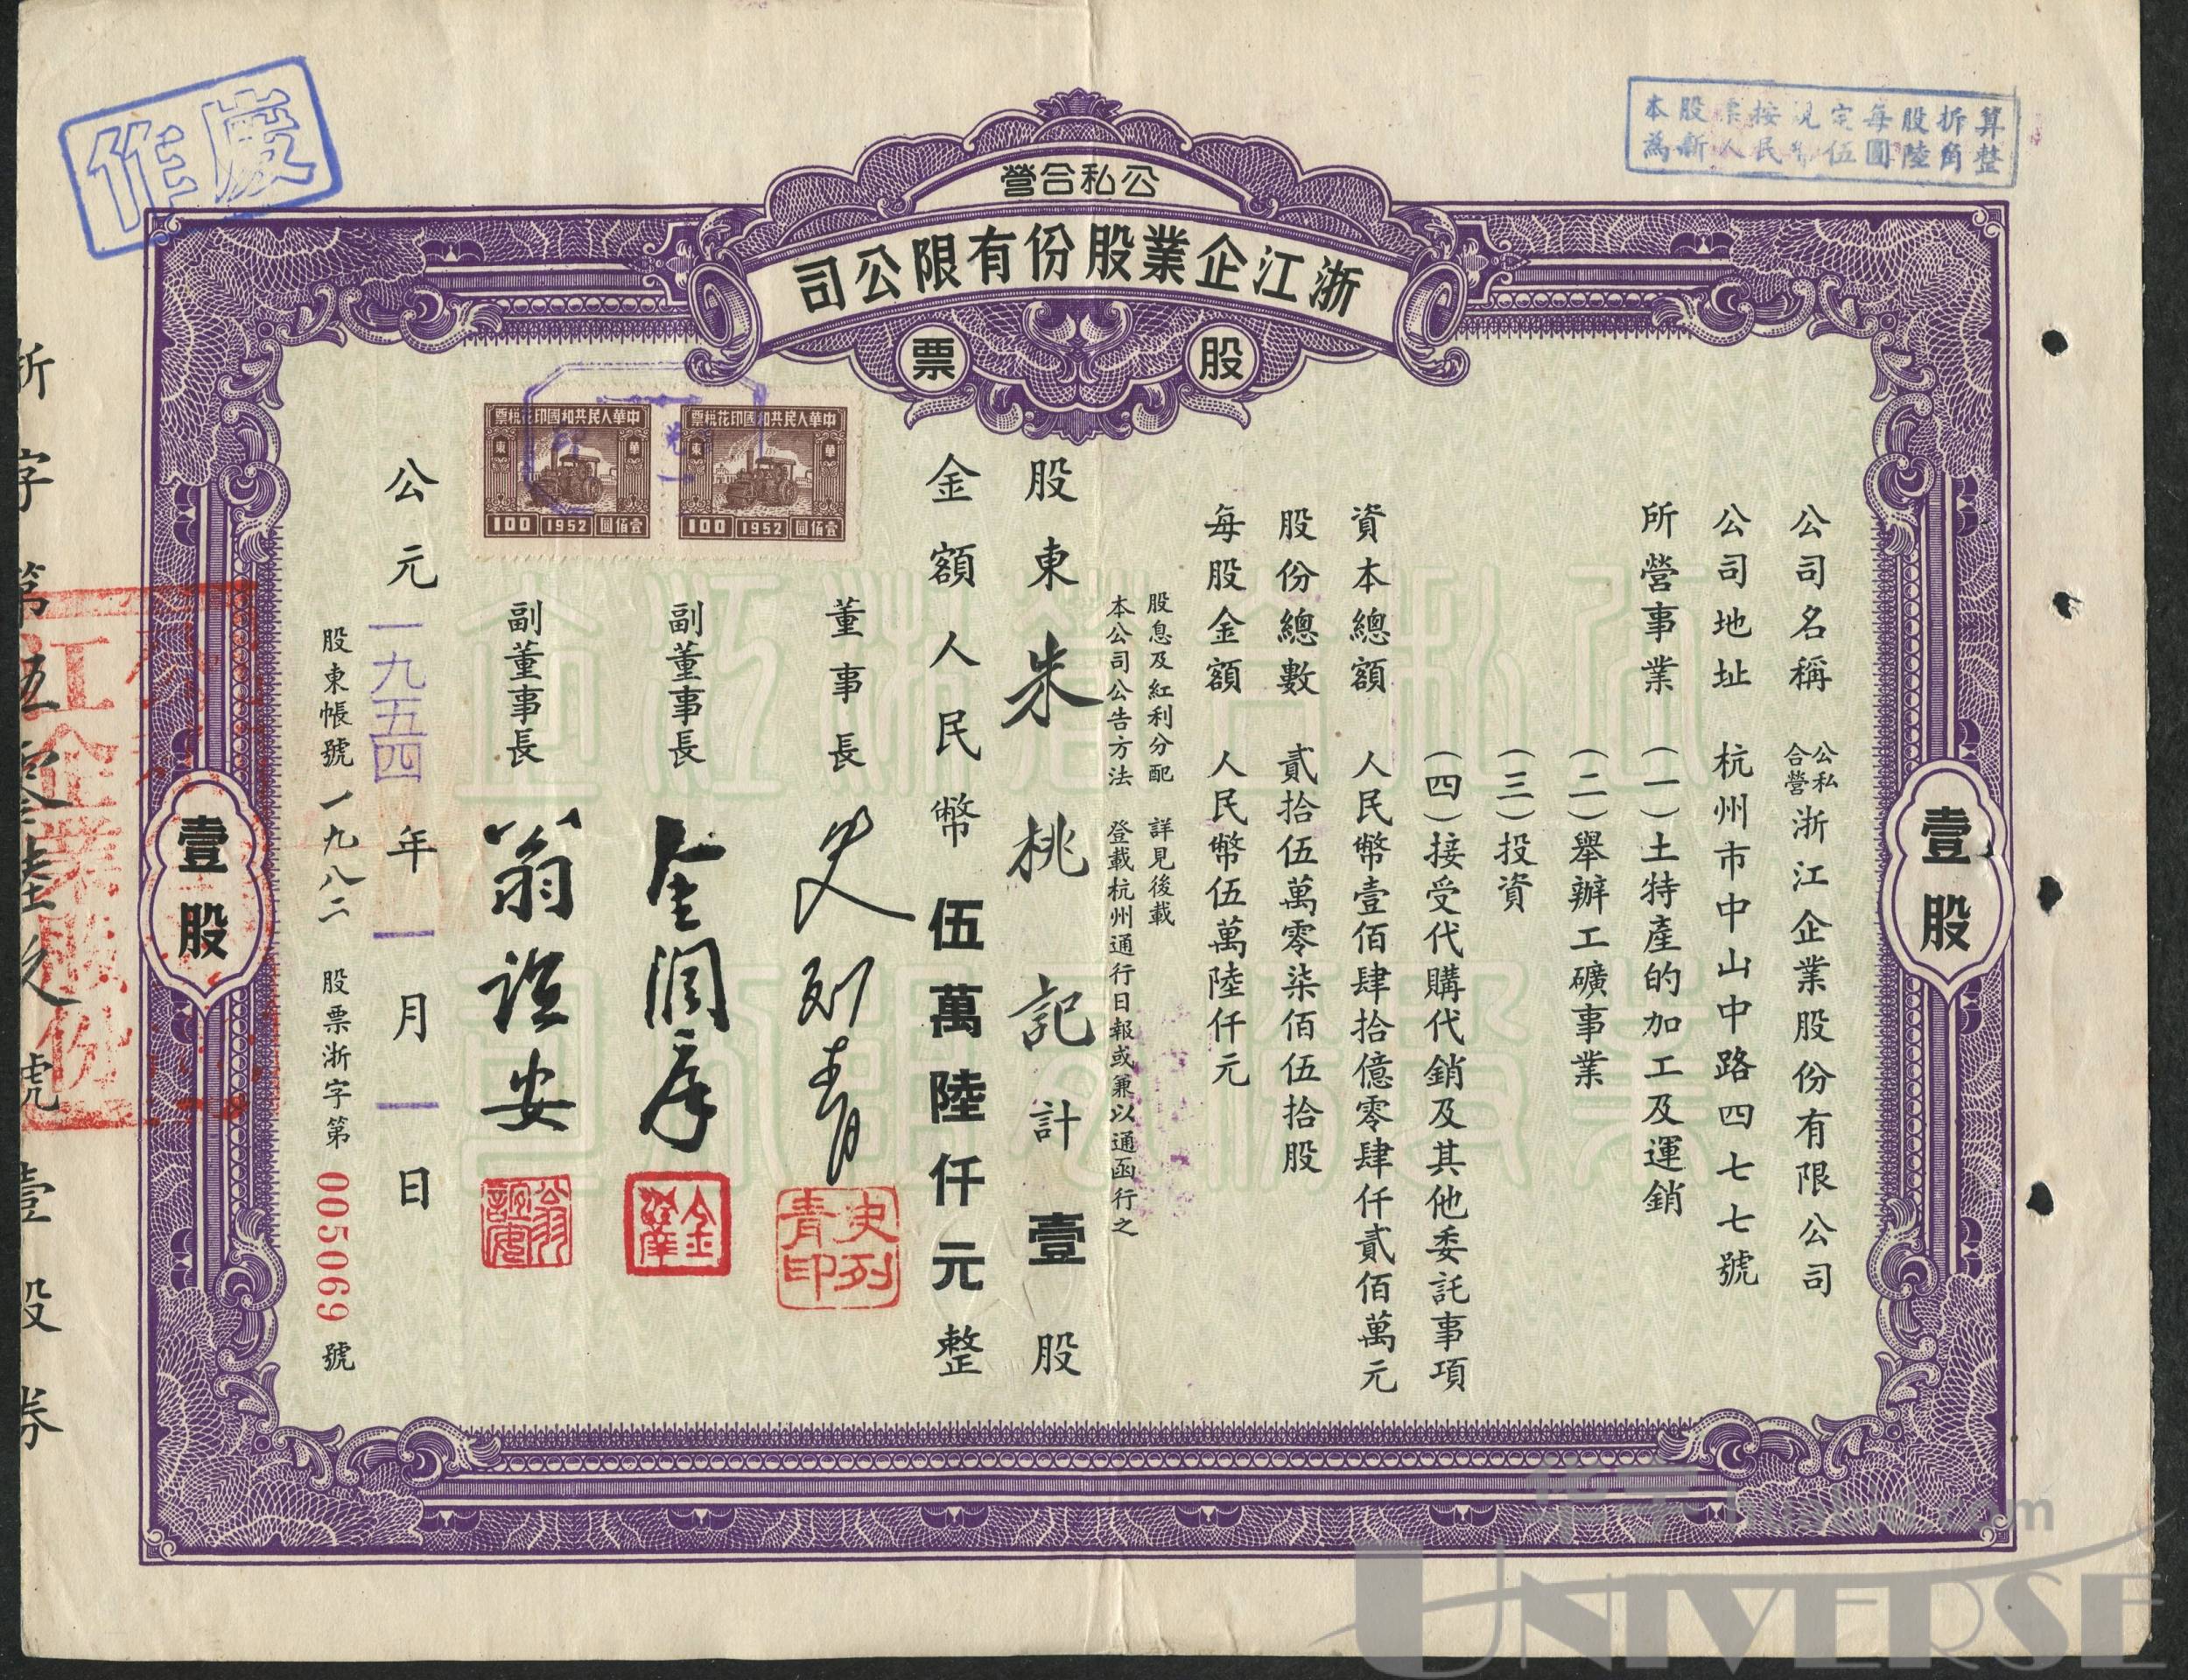 公私合營
浙江企業股份有限公司
股票
本股票按規定每股折算
為新人民幣伍圓陸角整
廢作
壹股
公司名稱 公私合營浙江企業股份有限公司
公司地址 杭州市中山中路四七七號
所營事業 (一)土特產的加工及運銷
(二)舉辦工礦事業
(三)投資
(四)接受代購代銷及其他委託事項
資本總額 人民幣壹佰肆拾億零肆仟貳佰萬元
股份總數 貳拾伍萬零柒佰伍拾股
每股金額 人民幣伍萬陸仟元
股息及紅利分配 詳見後載
本公司公告方法 登載杭州通行日報或兼以通函行之
股東 朱桃記 計壹股
金額人民幣伍萬陸仟元整
中華人民共和國印花稅票
華東
100 1952 壹佰圓
中華人民共和國印花稅票
華東
100 1952 壹佰圓
董事長 史列青
史列青印
副董事長 金潤庠
金潤庠
副董事長 翁誼安
翁誼安
公元一九五四年一月一日
股東帳號 一九八二 股票浙字第 005069 號
壹股
浙字第伍零陸玖號壹股券
公私合營浙江企業股份
华宇 huabid.com
UNIVERSE